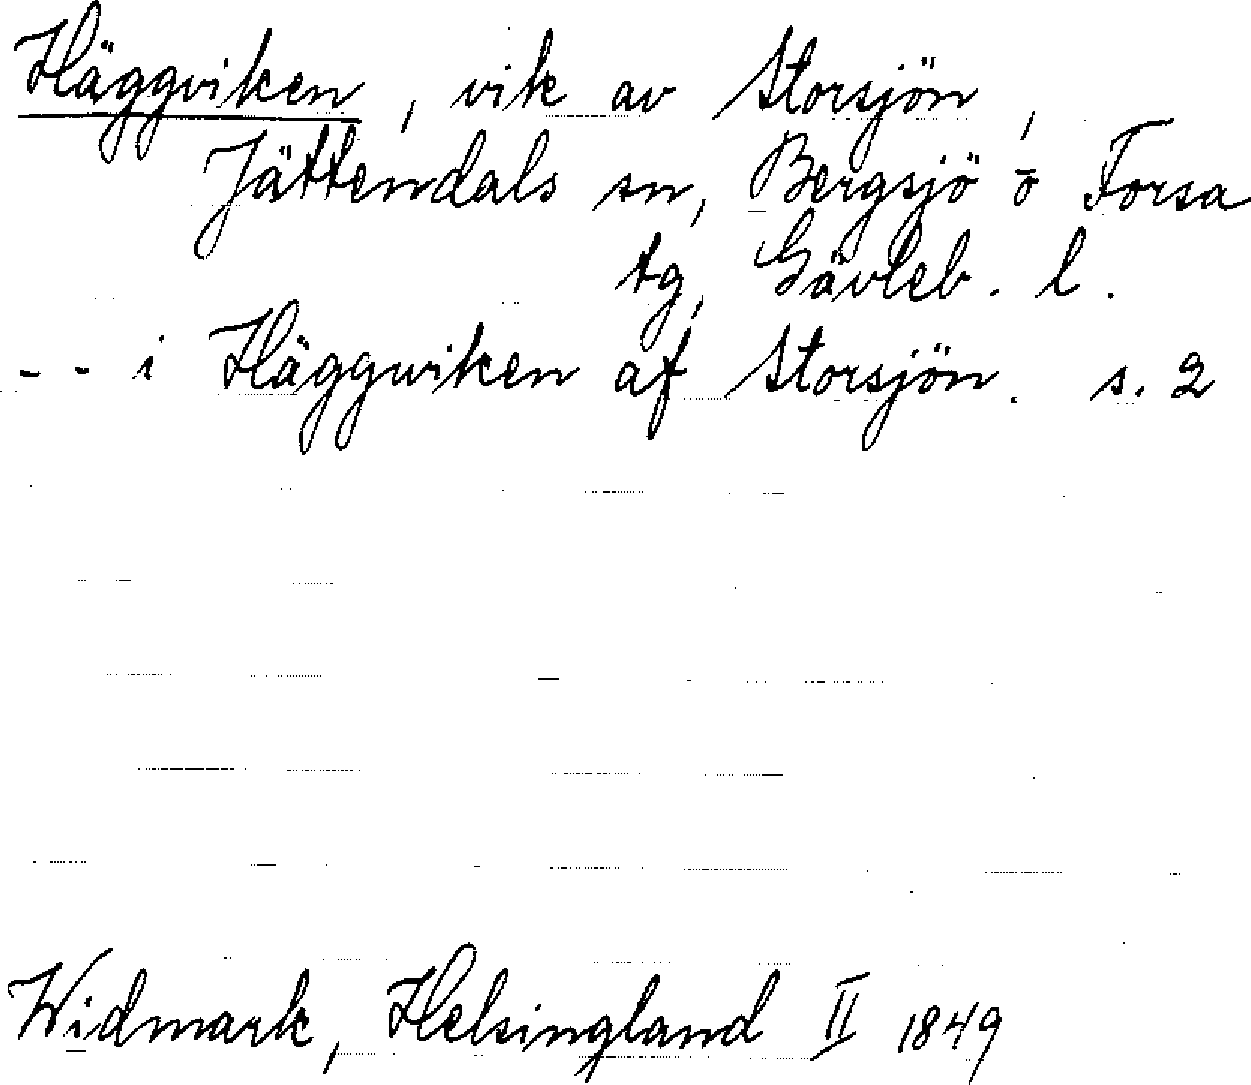 Häggviken, vik av Storsjön,
Jättendals sn, Bergsjö o Forsa
tg, Gävleb. l.
- - i Häggwiken af Storsjön. s. 2
Widmark, Helsingland II 1849